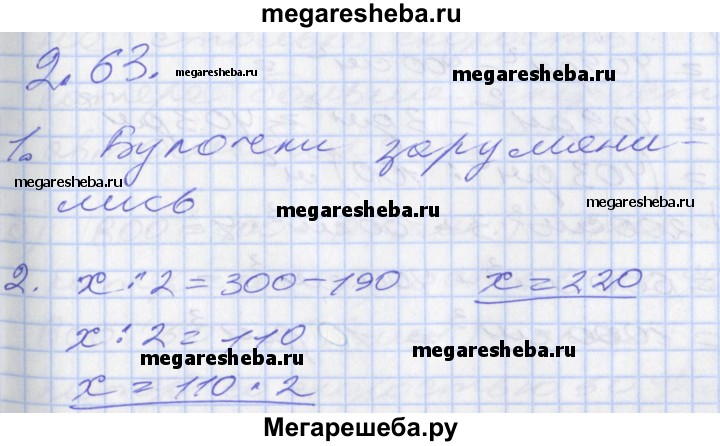 megaresheba.ru
2.63.
megaresheba.ru
megaresheba.ru
1. Булочки зарумяни-
лись
megaresheba.ru
megaresheba.ru
megaresheba.ru
2. x : 2 = 300 - 190
x = 220
x : 2 = 110
megaresheba.ru
megaresheba.ru
x = 110 · 2
Мегарешеба.ру